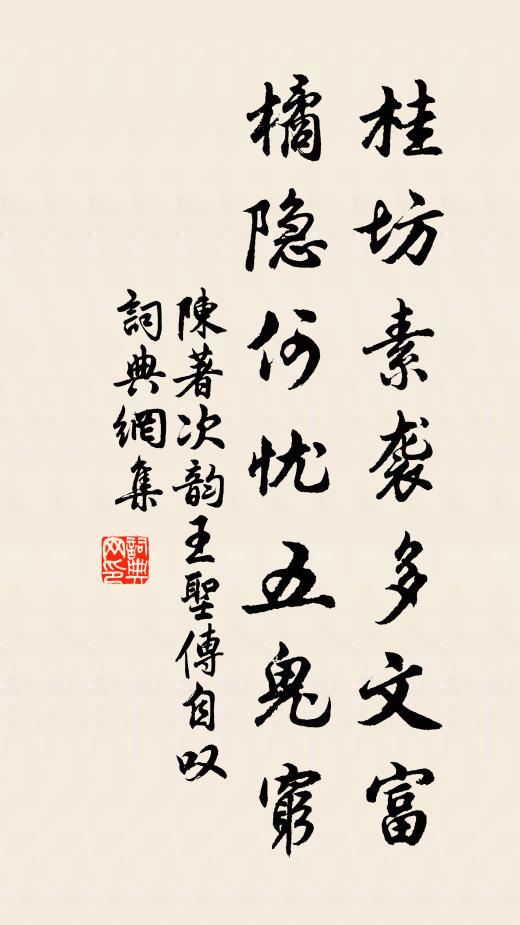 桂坊素袭多文富
橘隐何忧五鬼窮
陳著次韵王聖傳自叹
詞典網集
詞典网印